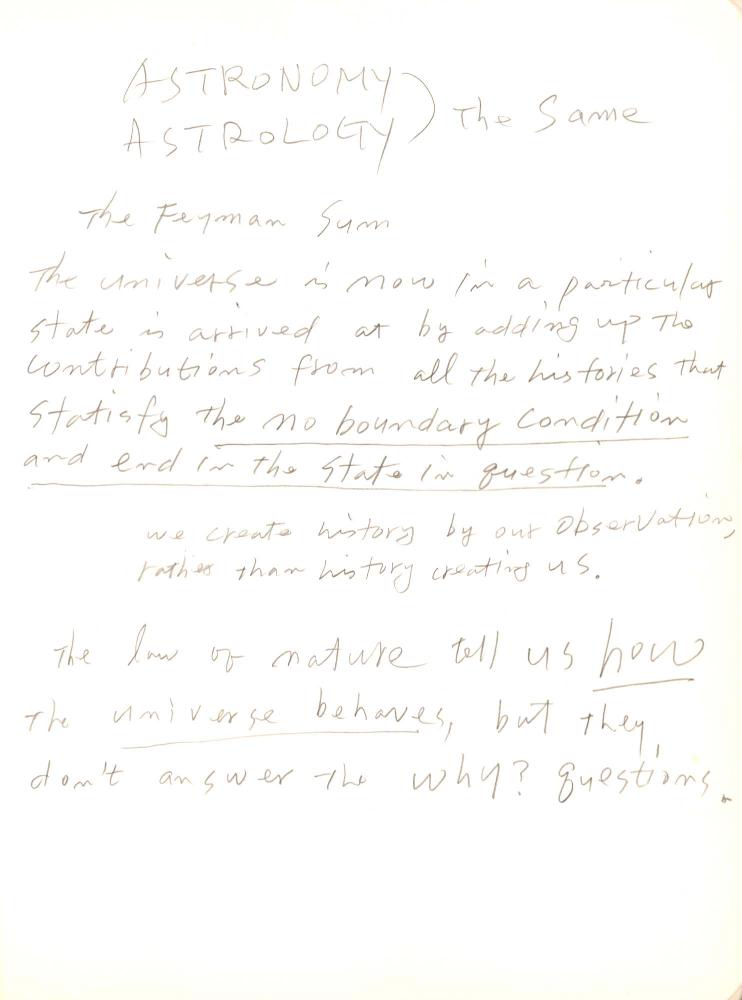 ASTRONOMY
ASTROLOGY ) The Same
The Feyman Sum
The universe is now in a particular
state is arrived at by adding up The
contributions from all the histories that
statisfy the no boundary condition
and end in the state in question.
we create history by our observation,
rather than history creating us.
The law of nature tell us how
The universe behaves, but they
don't answer the why? questions.